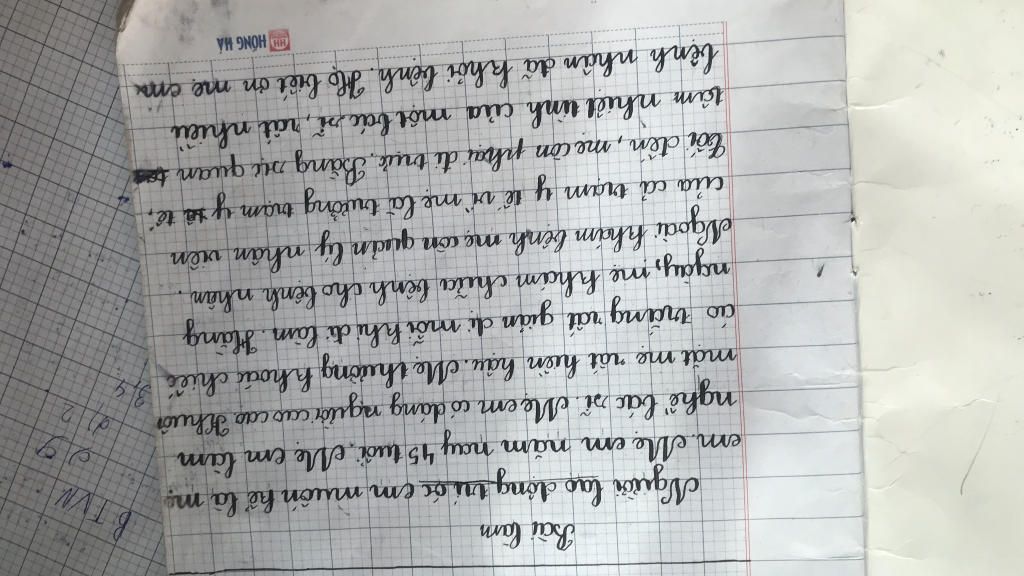 Bài làm
Người lao động trí óc em muốn kể là mẹ
em. Mẹ em năm nay 45 tuổi. Mẹ em làm
nghề bác sĩ. Mẹ em có dáng người cao cao. Khuôn
mặt mẹ rất hiền hậu. Mẹ thường khoác chiếc
áo trắng rất giản dị mỗi khi đi làm. Hằng
ngày, mẹ khám chữa bệnh cho bệnh nhân.
Ngoài khám bệnh mẹ còn quản lý nhân viên
của cả trạm y tế vì mẹ là trưởng trạm y tế.
Tối đến, mẹ còn phải đi trực. Bằng sự quan
tâm nhiệt tình của một bác sĩ, rất nhiều
bệnh nhân đã khỏi bệnh. Họ biết ơn mẹ em
HH HỒNG HÀ
BTVN